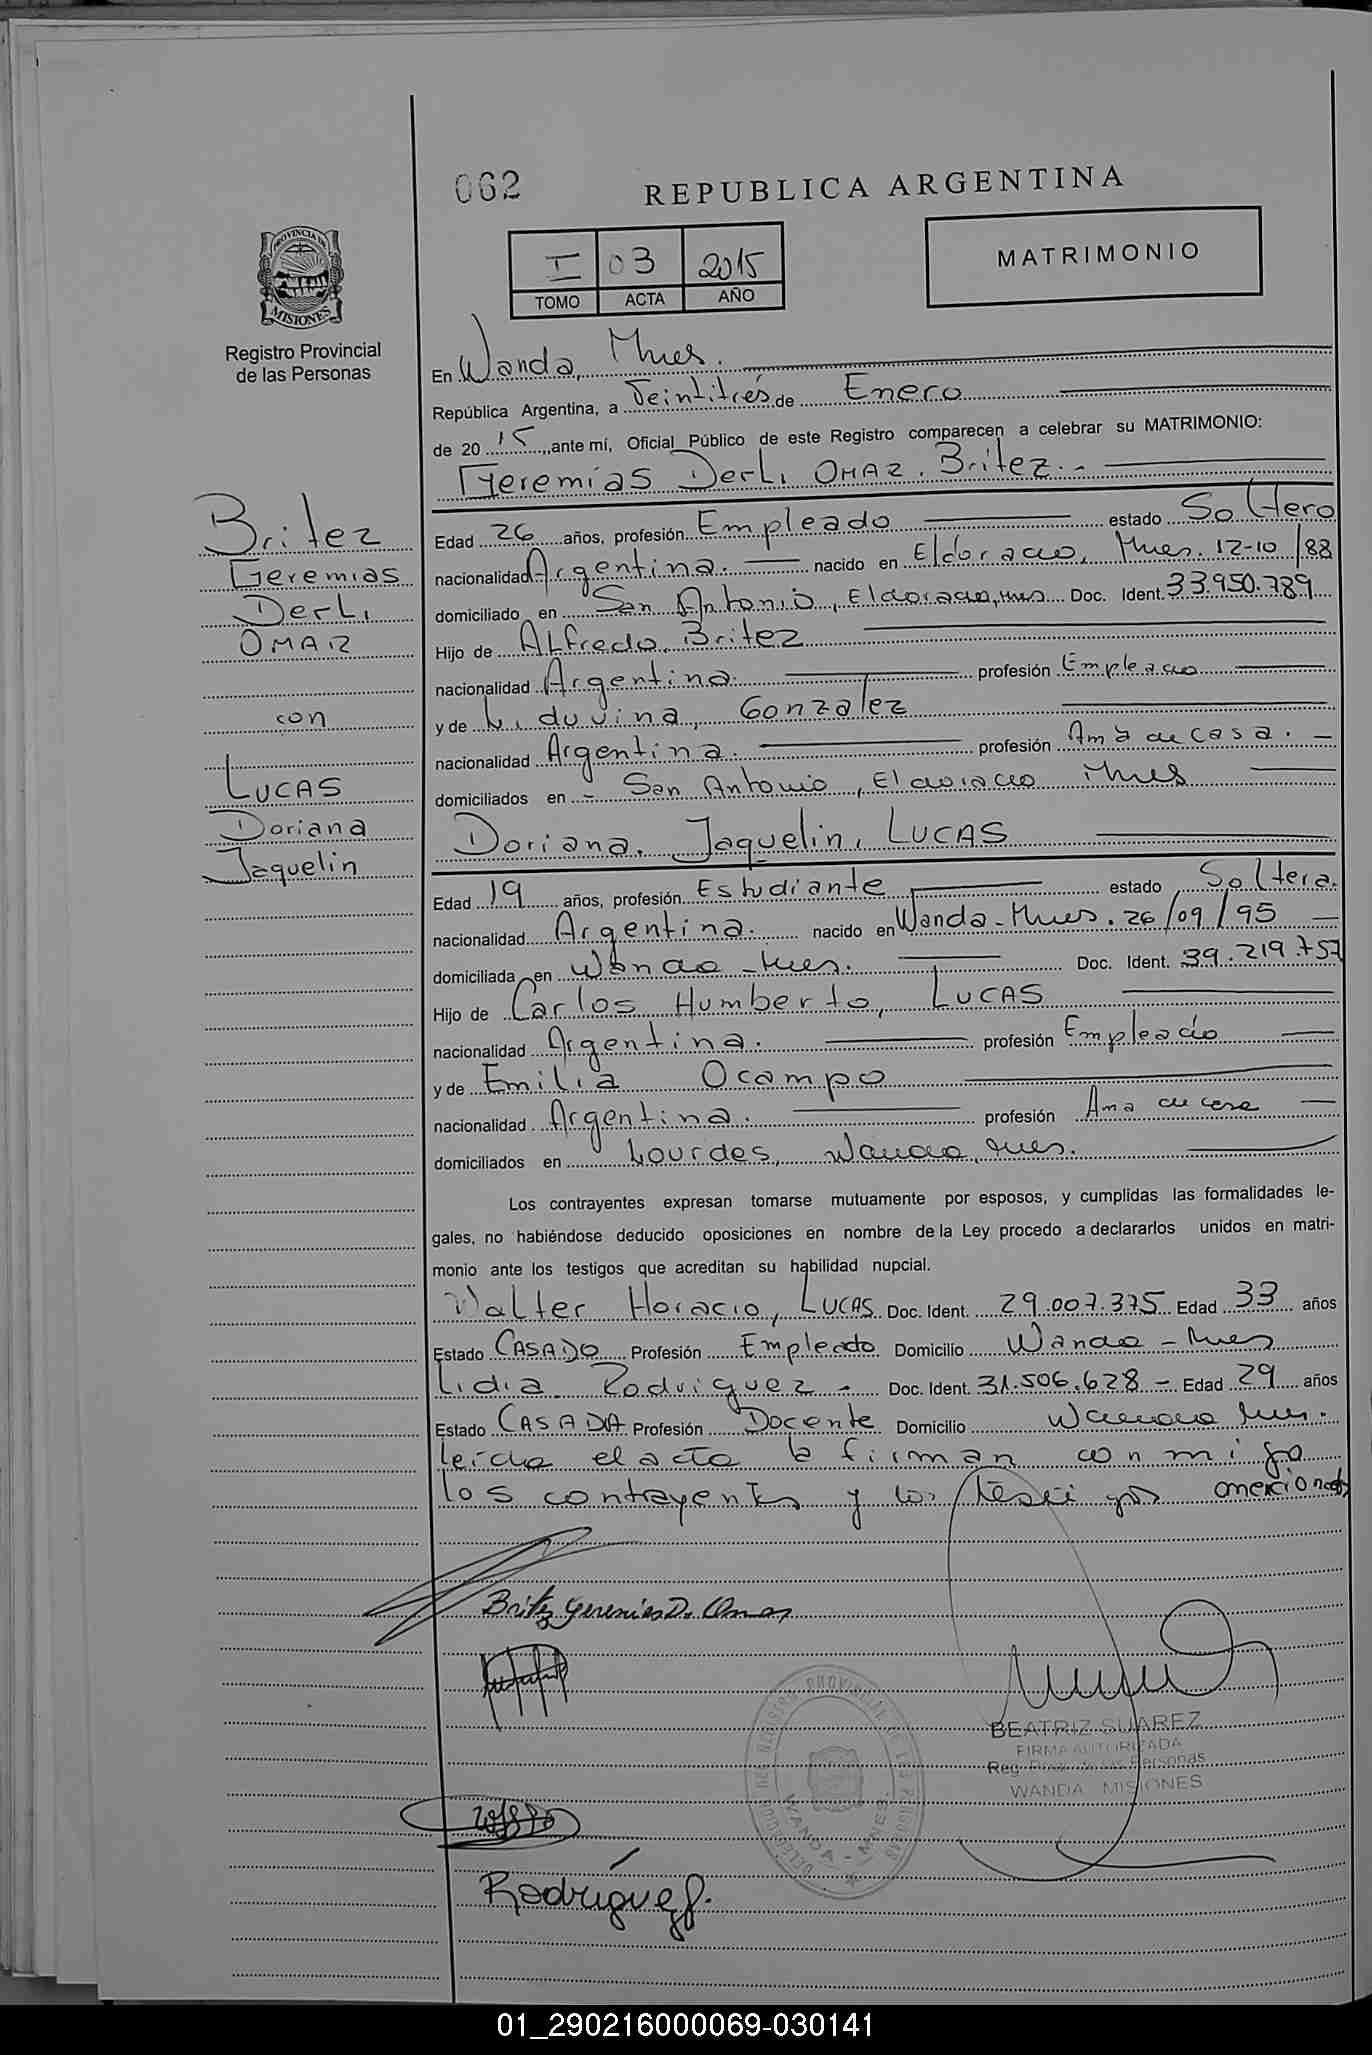 062
REPUBLICA ARGENTINA
MATRIMONIO
I 03 2015
TOMO ACTA AÑO
PROVINCIA DE
MISIONES
Registro Provincial
de las Personas
En Wanda, Mnes.
República Argentina, a Veintitrés de Enero
de 20 15, ante mí, Oficial Público de este Registro comparecen a celebrar su MATRIMONIO:
Geremias Derli OMAR. Britez.-
Britez
Geremias
Derli
OMAR
con
LUCAS
Doriana
Jaquelin
Edad 26 años, profesión Empleado estado Soltero
nacionalidad Argentina. nacido en Eldorado, Mnes. 12-10/88
domiciliado en San Antonio, Eldorado, Mnes Doc. Ident. 33.950.789
Hijo de Alfredo Britez
nacionalidad Argentina. profesión Empleado
y de Liduvina, Gonzalez
nacionalidad Argentina. profesión Ama de casa. -
domiciliados en - San Antonio, Eldorado Mnes
Doriana, Jaquelin, LUCAS
Edad 19 años, profesión Estudiante estado Soltera.
nacionalidad Argentina. nacido en Wanda-Mnes. 26/09/95
domiciliada en Wanda-Mnes. Doc. Ident. 39.219.757
Hijo de Carlos Humberto, LUCAS
nacionalidad Argentina. profesión Empleado
y de Emilia Ocampo
nacionalidad Argentina. profesión Ama de casa
domiciliados en Lourdes, Wanda, Mnes.
Los contrayentes expresan tomarse mutuamente por esposos, y cumplidas las formalidades le-
gales, no habiéndose deducido oposiciones en nombre de la Ley procedo a declararlos unidos en matri-
monio ante los testigos que acreditan su habilidad nupcial.
Walter Horacio, LUCAS Doc. Ident. 29.007.375 Edad 33 años
Estado CASADO Profesión Empleado Domicilio Wanda-Mnes
Lidia Rodriguez - Doc. Ident. 31.506.628 - Edad 29 años
Estado CASADA Profesión Docente Domicilio Wanda Mnes.
Leída el acta la firman conmigo
los contrayentes y los testigos
Britez Geremias D. Omar
BEATRIZ SUAREZ
FIRMA AUTORIZADA
Reg. Prov. de las Personas
WANDA MISIONES
DELEGACION DEL REGISTRO PROVINCIAL DE LAS PERSONAS
WANDA - MNES
Rodríguez
01_290216000069-030141